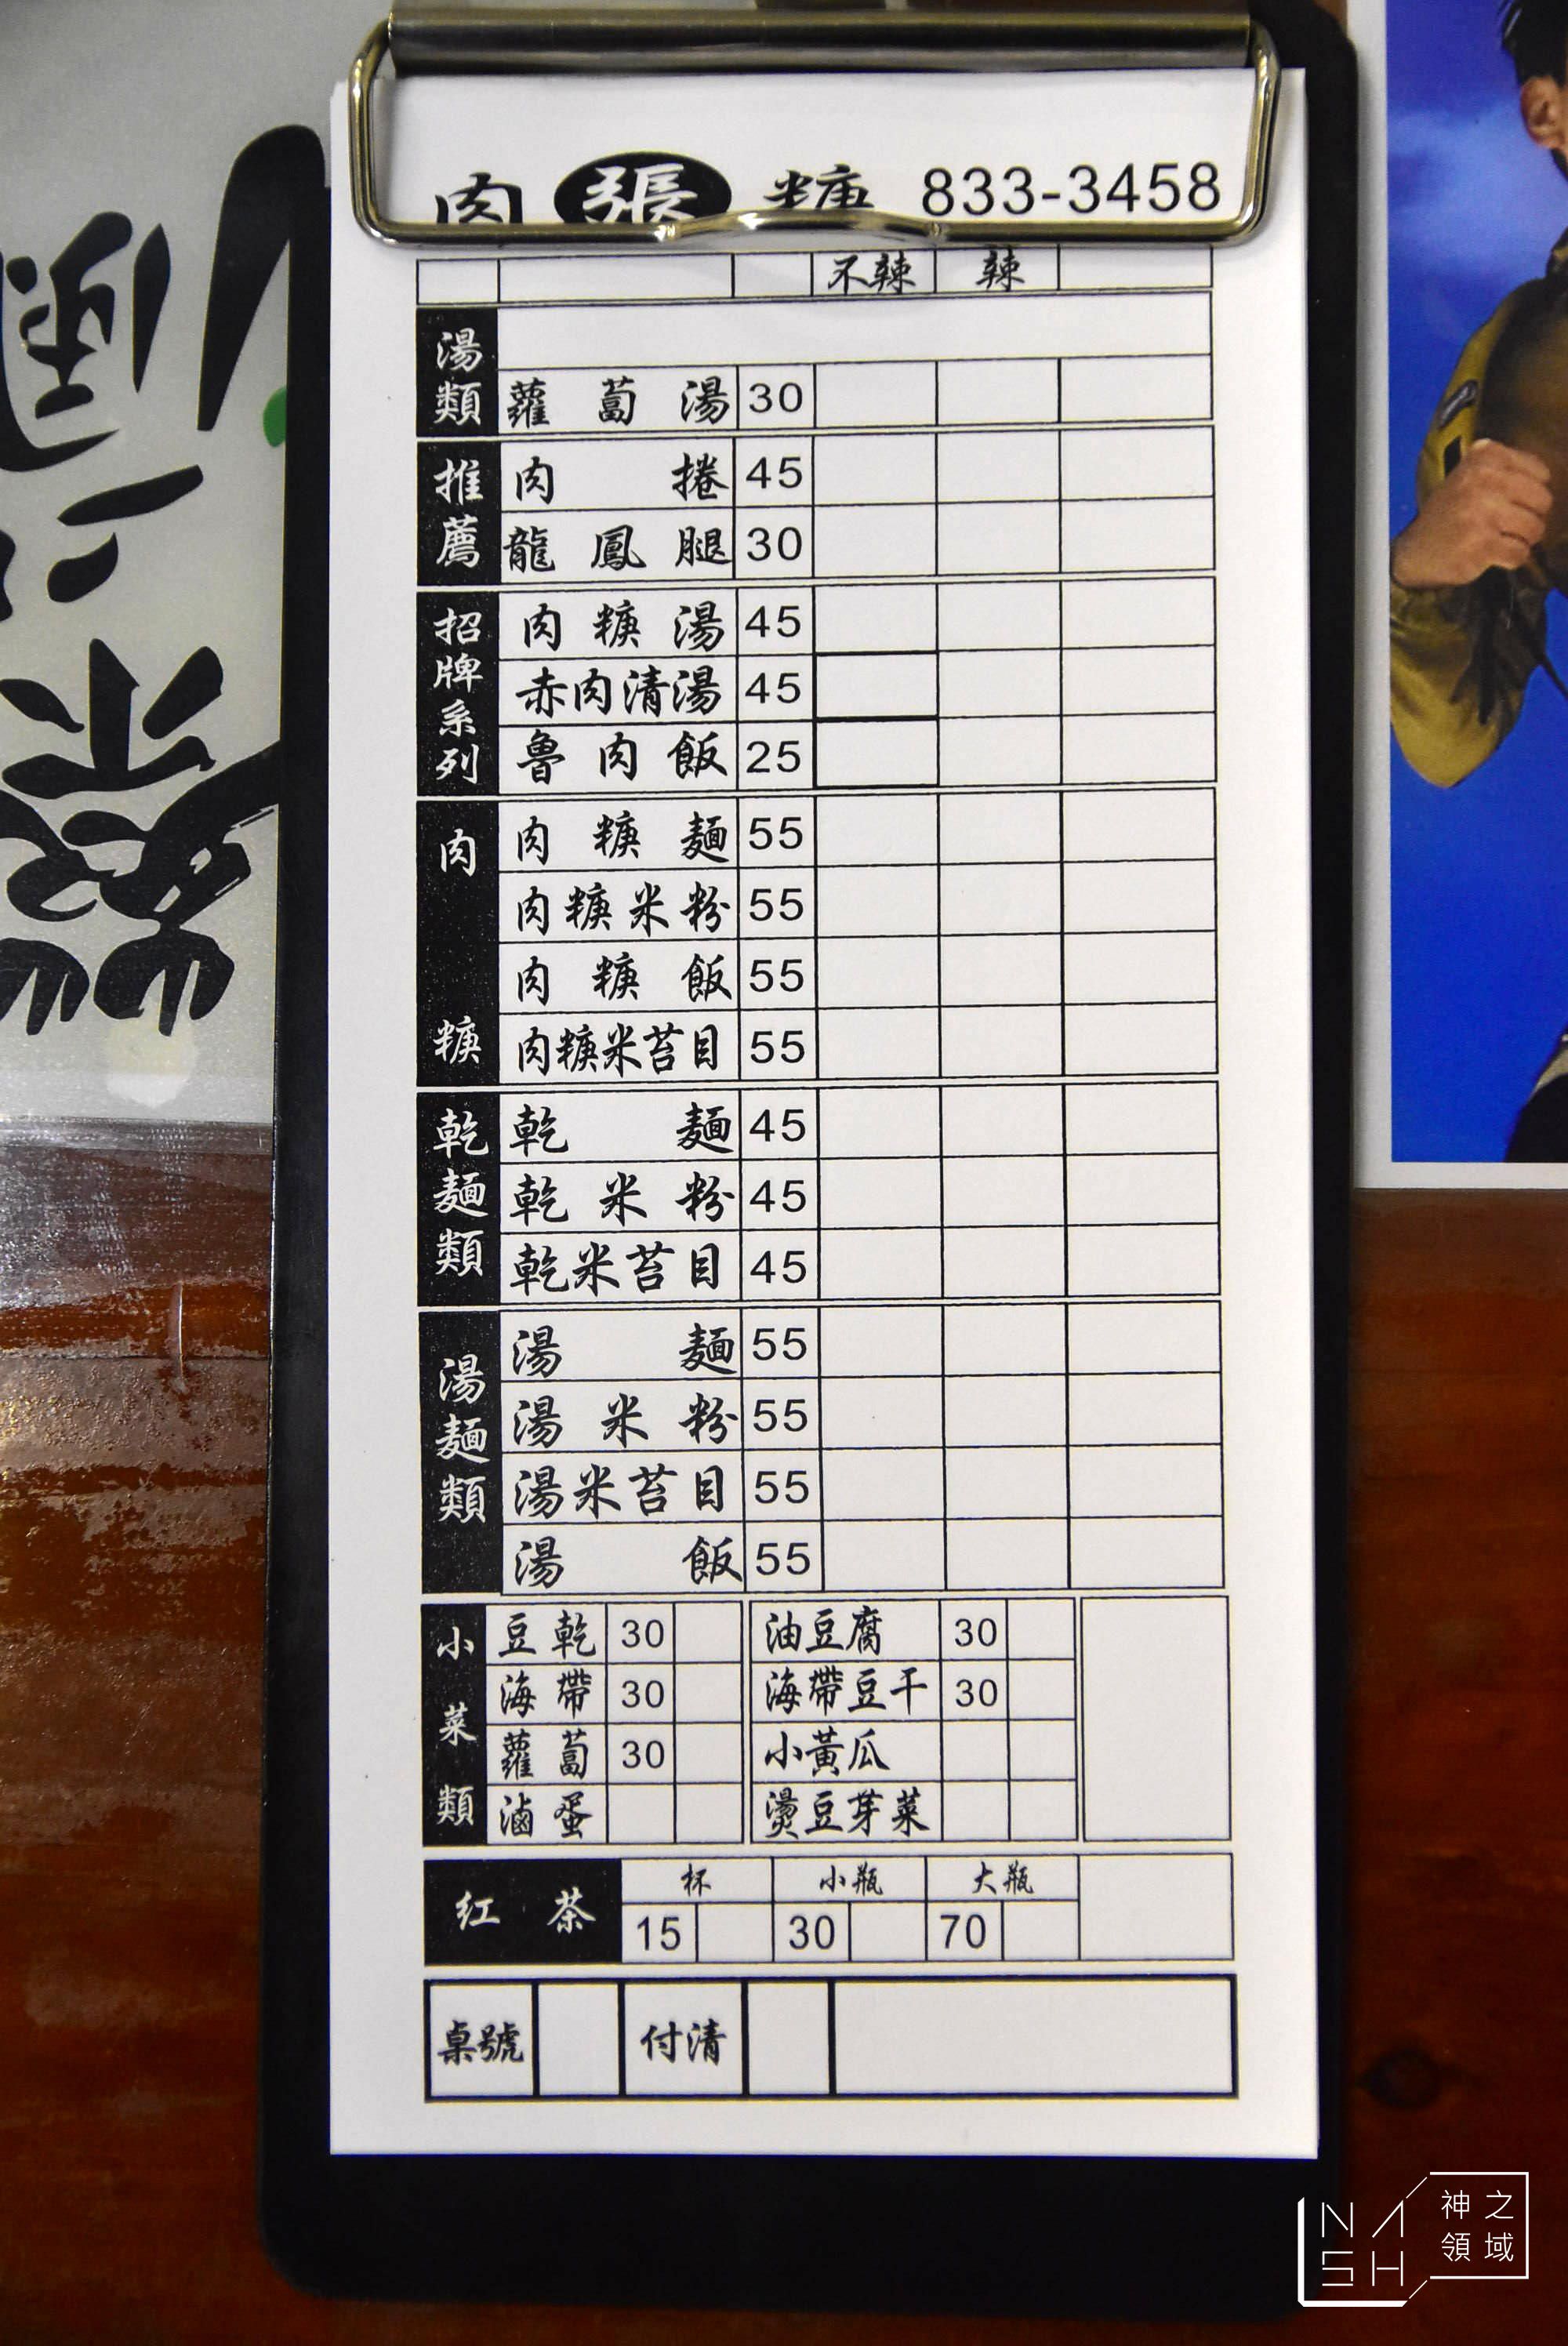 肉 張 焿 833-3458
不辣 辣
湯類
蘿蔔湯 30
推薦
肉捲 45
龍鳳腿 30
招牌系列
肉焿湯 45
赤肉清湯 45
魯肉飯 25
肉焿
肉焿麵 55
肉焿米粉 55
肉焿飯 55
肉焿米苔目 55
乾麵類
乾麵 45
乾米粉 45
乾米苔目 45
湯麵類
湯麵 55
湯米粉 55
湯米苔目 55
湯飯 55
小菜類
豆乾 30 油豆腐 30
海帶 30 海帶豆干 30
蘿蔔 30 小黃瓜
滷蛋 燙豆芽菜
紅茶 杯 小瓶 大瓶
15 30 70
桌號 付清
NASH 神之領域